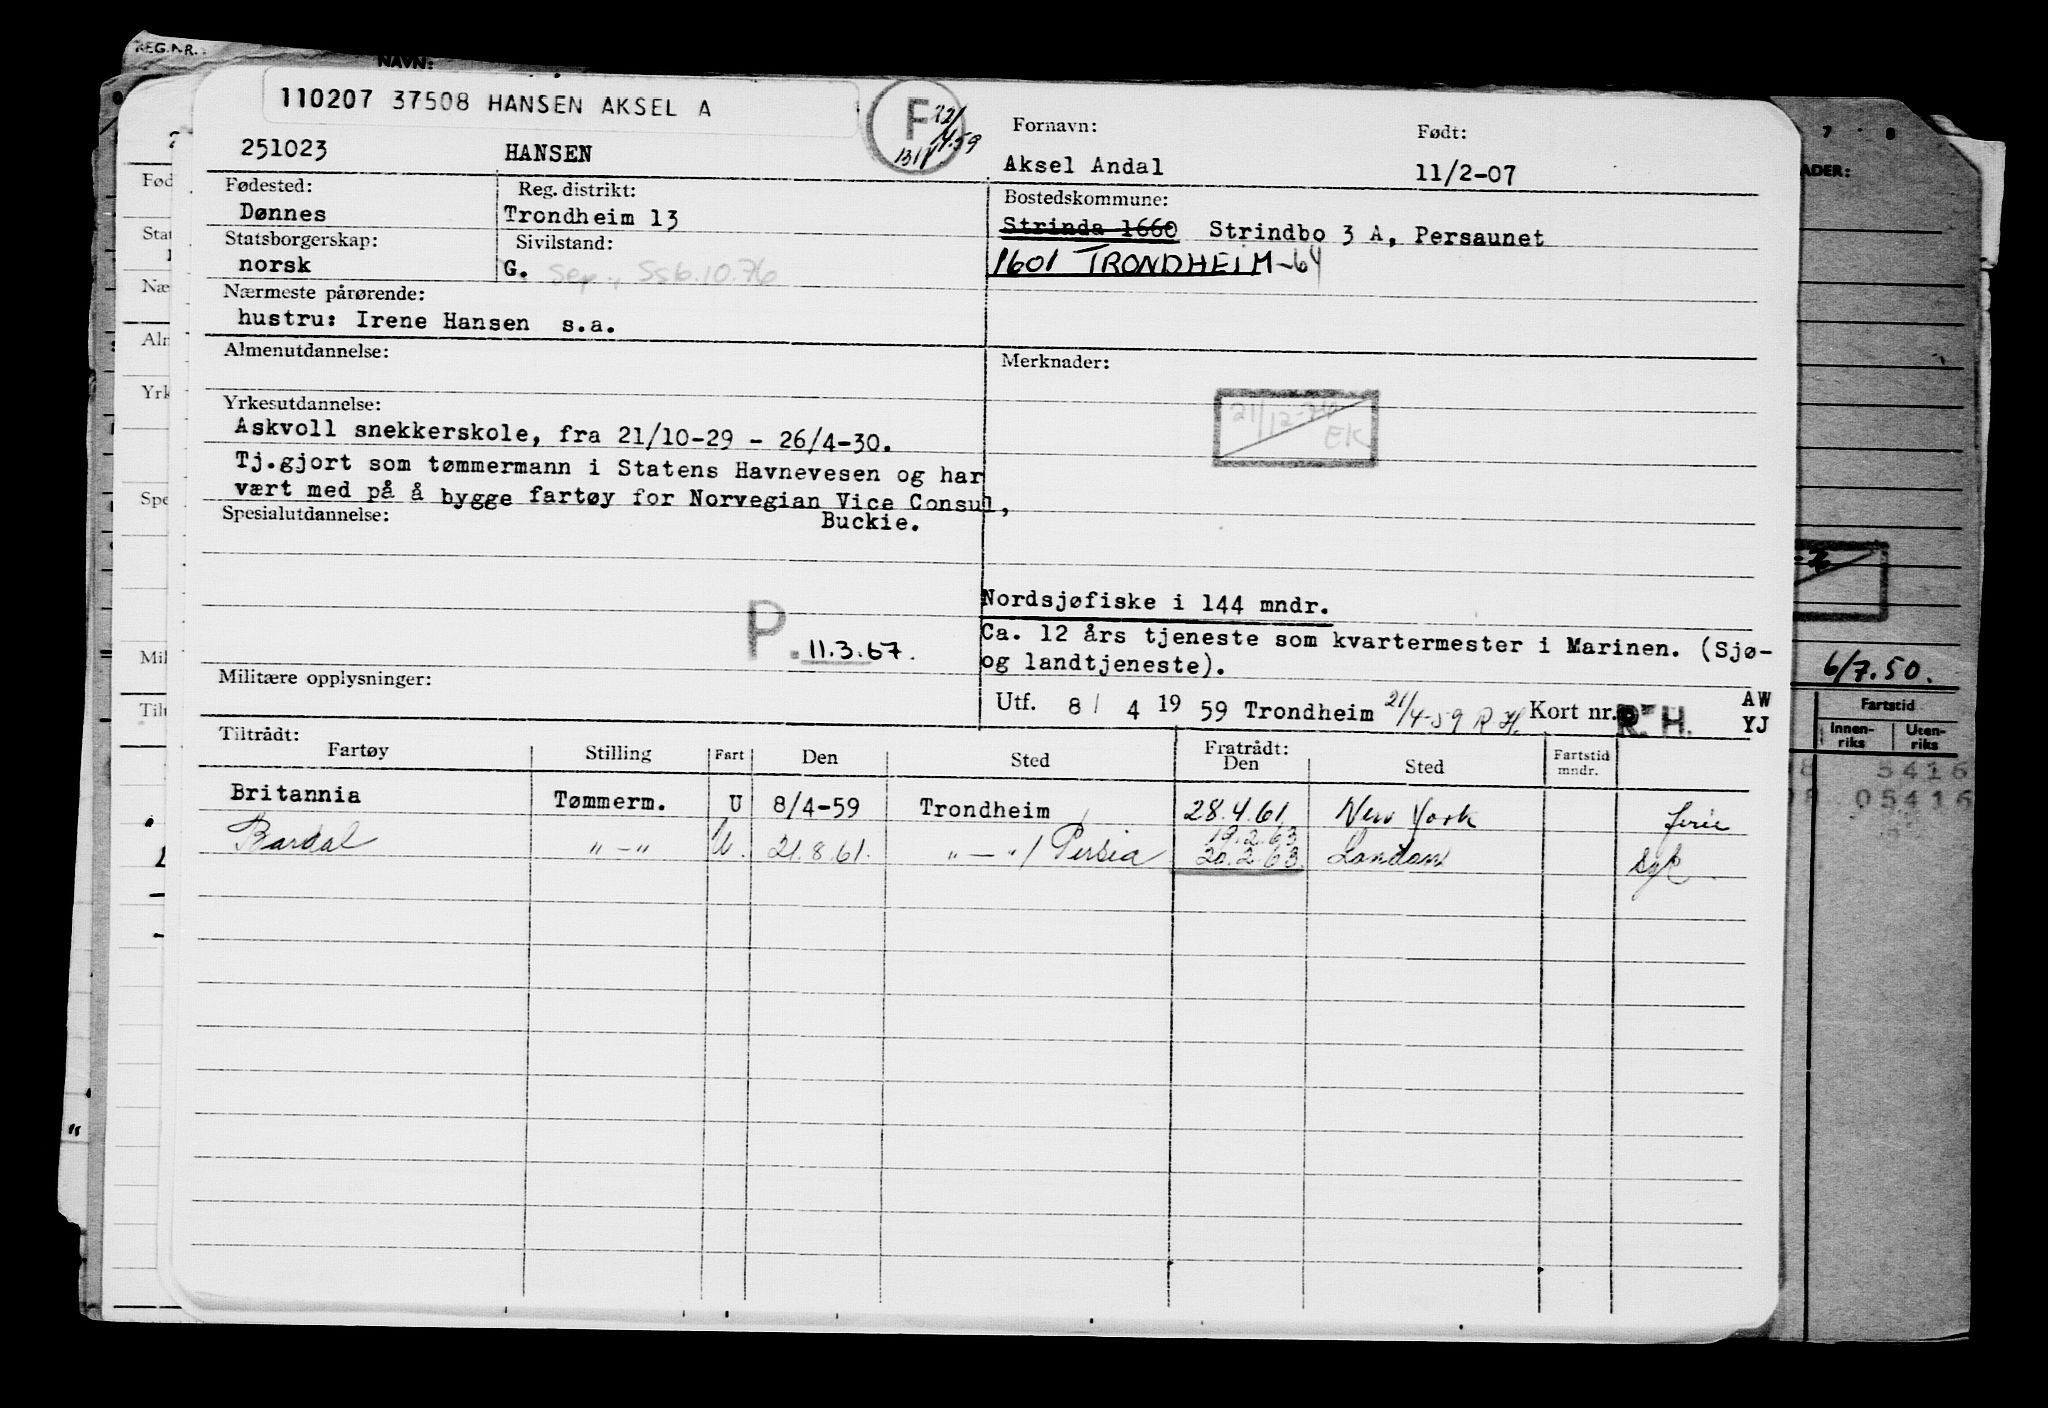 REG.NR.
NAVN:
110207 37508 HANSEN AKSEL A
F 22/4.59
Fornavn:
Født:
251023 HANSEN
Aksel Andal 11/2-07
Fødested:
Reg. distrikt:
Bostedskommune:
Dønnes
Trondheim 13
Strinda 1660 Strindbo 3 A, Persaunet
Statsborgerskap:
Sivilstand:
1601 TRONDHEIM-64
norsk
G. Sep., Ssb.10.76
Nærmeste pårørende:
hustru: Irene Hansen s.a.
Almenutdannelse:
Merknader:
Yrkesutdannelse:
21/12-76 EK
Askvoll snekkerskole, fra 21/10-29 - 26/4-30.
Tj.gjort som tømmermann i Statens Havnevesen og har
vært med på å bygge fartøy for Norvegian Vice Consul,
Spesialutdannelse:
Buckie.
Nordsjøfiske i 144 mndr.
P. 11.3.67.
Ca. 12 års tjeneste som kvartermester i Marinen. (Sjø-
og landtjeneste).
Militære opplysninger:
Utf. 8/ 4 19 59 Trondheim 21/4-59 R H. Kort nr. R. H. AW
YJ
Tiltrådt:
Fratrådt:
Fartøy Stilling Fart Den Sted Den Sted Fartstid mndr.
Britannia Tømmerm. U 8/4-59 Trondheim 28.4.61 New York ferie
19.2.63
Bardal "-" U. 21.8.61. "-"/ Persia 20.2.63. London syk
7 8
6/7.50.
Fartstid
Innen-riks Uten-riks
5416
05416